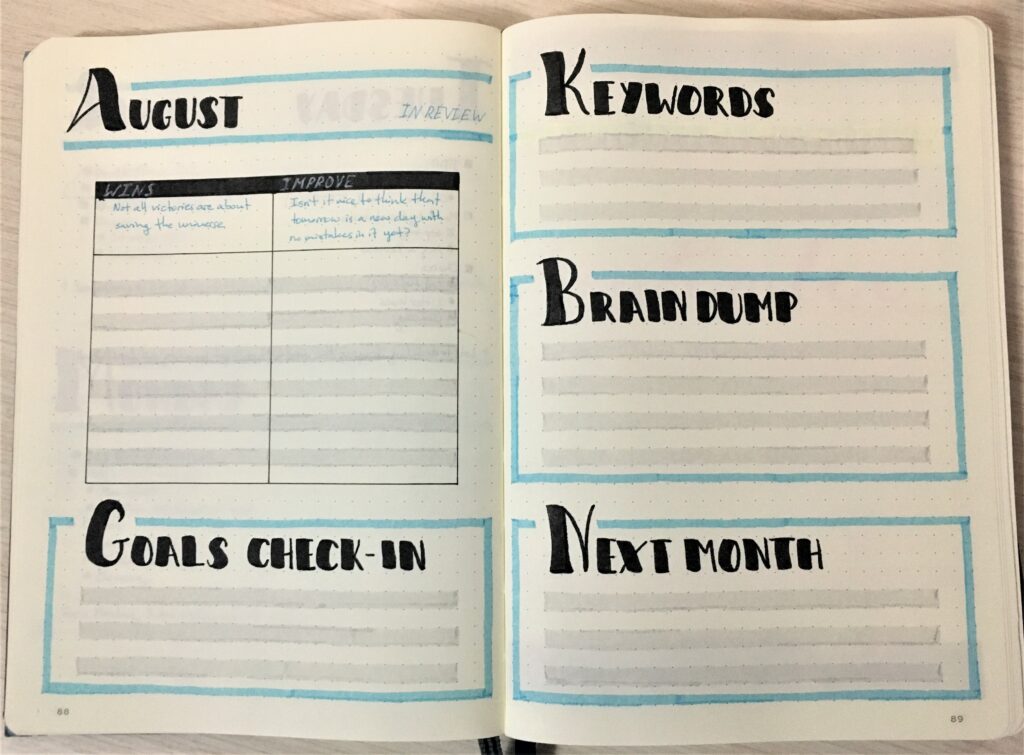 AUGUST
IN REVIEW
WINS
IMPROVE
Not all victories are about
saving the universe
Isn't it nice to think that
tomorrow is a new day with
no mistakes in it yet?
GOALS CHECK-IN
88
KEYWORDS
BRAIN DUMP
NEXT MONTH
89